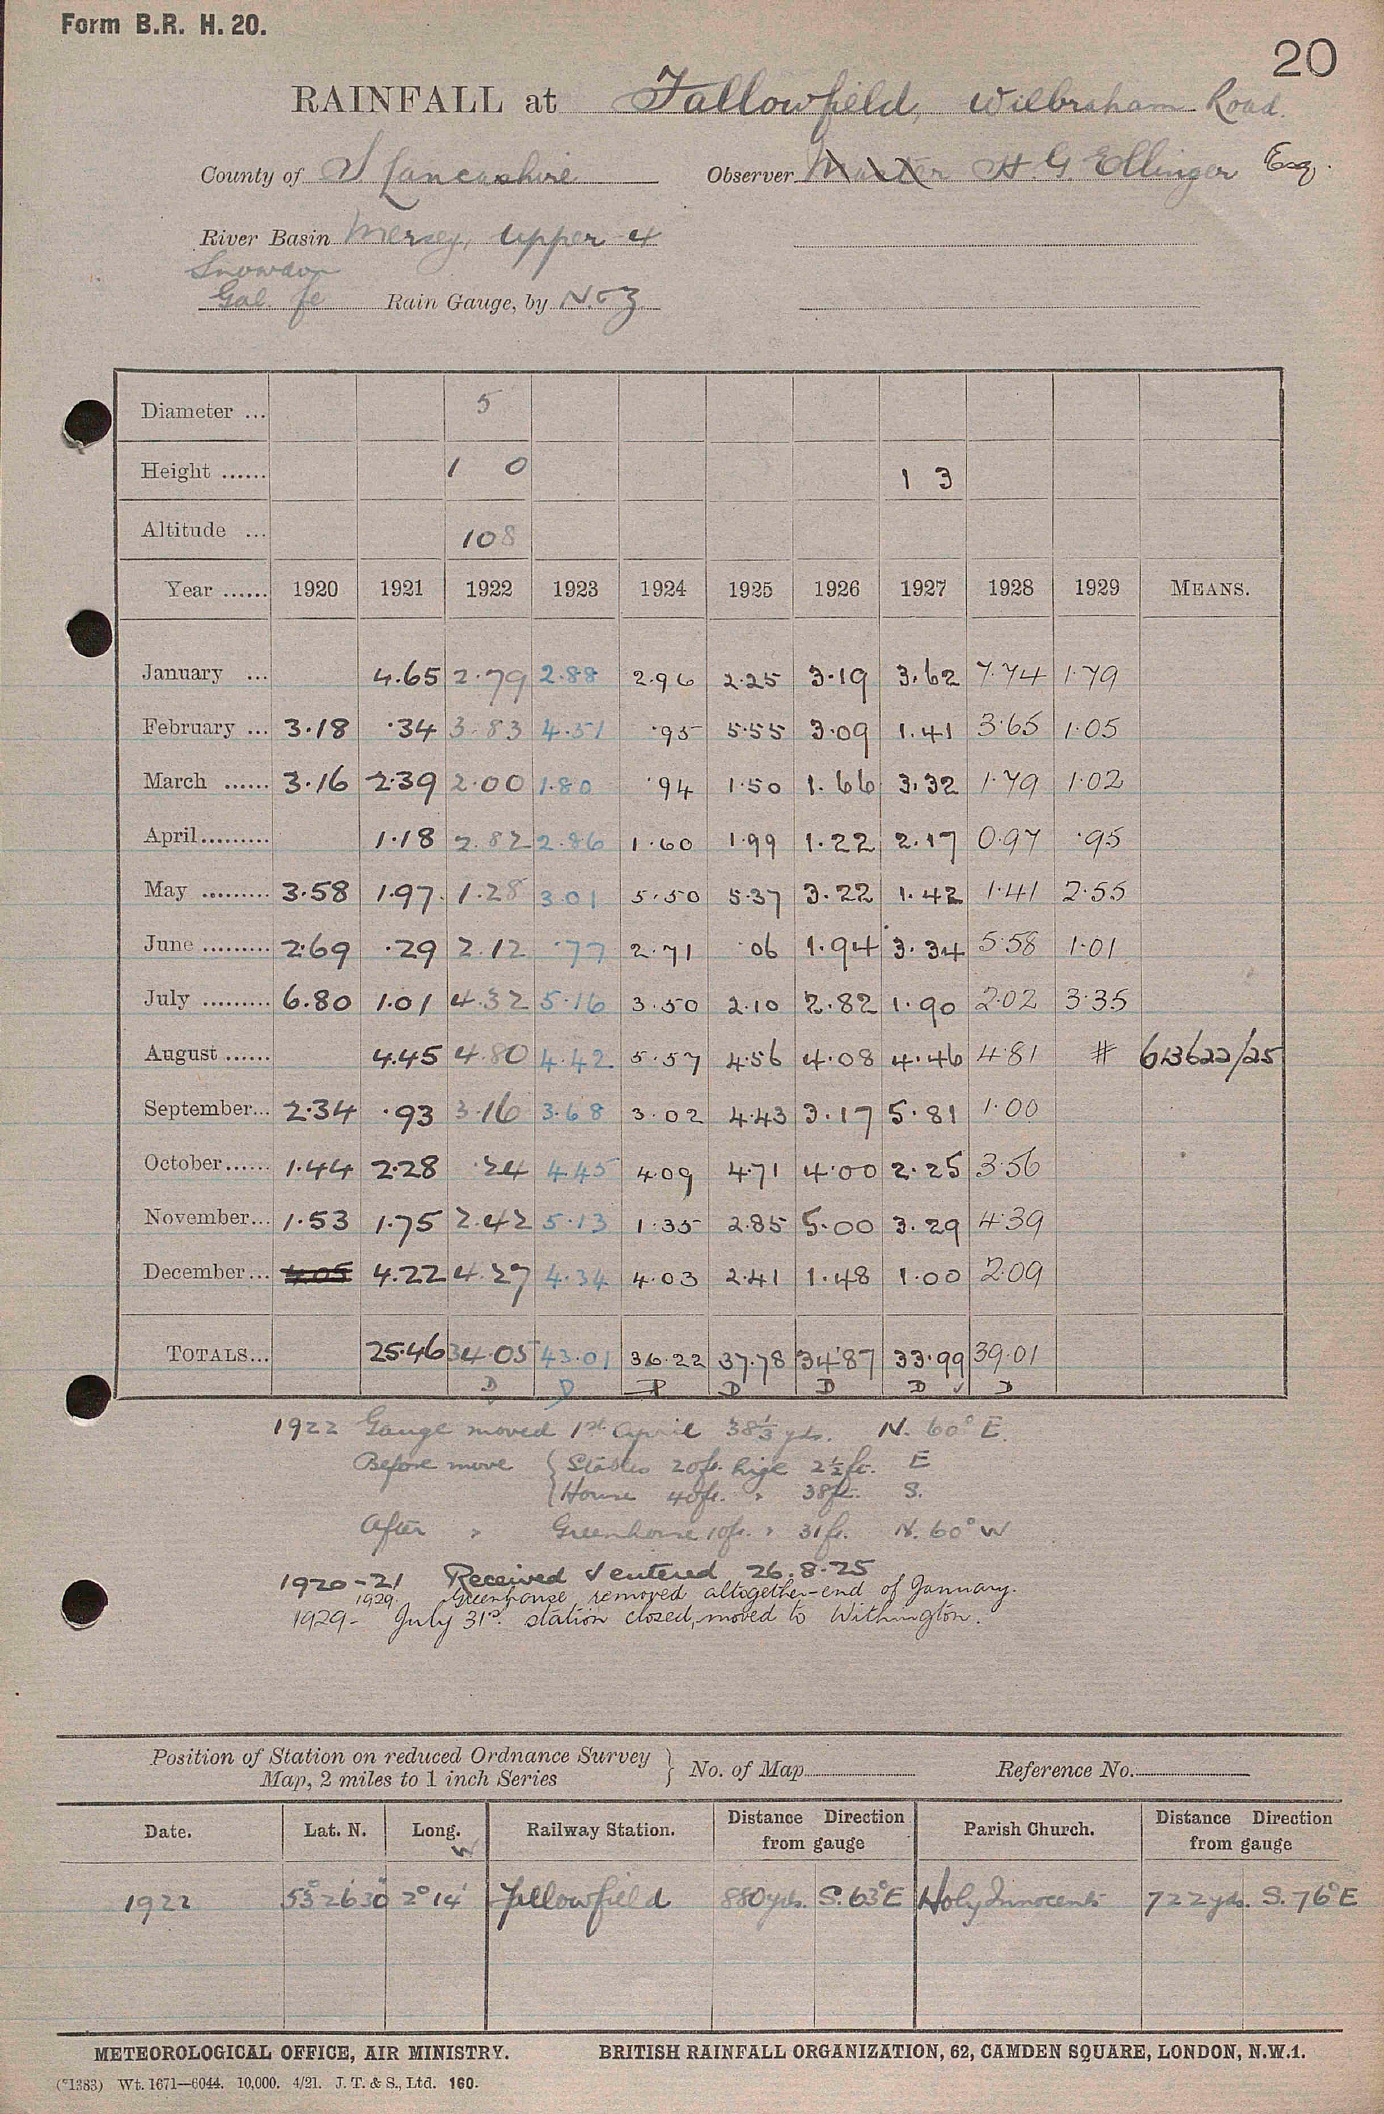 Form B.R. H. 20.
20
RAINFALL at Fallowfield, Wilbraham Road.
County of S Lancashire Observer Master H. G. Ellinger Esq.
River Basin Mersey, Upper 4
Snowdon
Gal. fe Rain Gauge, by N. & Z
Diameter ... 5
Height ...... 1 0 1 3
Altitude ... 108
Year ...... 1920 1921 1922 1923 1924 1925 1926 1927 1928 1929 MEANS.
January ... 4.65 2.79 2.88 2.96 2.25 3.19 3.62 7.74 1.79
February ... 3.18 .34 3.83 4.51 .95 5.55 3.09 1.41 3.65 1.05
March ...... 3.16 2.39 2.00 1.80 .94 1.50 1.66 3.32 1.79 1.02
April......... 1.18 2.82 2.86 1.60 1.99 1.22 2.17 0.97 .95
May ......... 3.58 1.97 1.28 3.01 5.50 5.37 3.22 1.42 1.41 2.55
June ......... 2.69 .29 2.12 .77 2.71 .06 1.94 3.34 5.58 1.01
July ......... 6.80 1.01 4.32 5.16 3.50 2.10 2.82 1.90 2.02 3.35
August ...... 4.45 4.80 4.42 5.57 4.56 4.08 4.46 4.81 # 613622/25
September... 2.34 .93 3.16 3.68 3.02 4.43 3.17 5.81 1.00
October...... 1.44 2.28 .24 4.45 4.09 4.71 4.00 2.25 3.56
November... 1.53 1.75 2.42 5.13 1.35 2.85 5.00 3.29 4.39
December... 4.05 4.22 4.27 4.34 4.03 2.41 1.48 1.00 2.09
TOTALS... 25.46 34.05 43.01 36.22 37.78 34.87 33.99 39.01
D D D D D D ✓ D
1922 Gauge moved 1st April 38⅓ yds. N. 60° E.
Before move { Stables 20ft. high 2½ft. E
{ House 40ft. " 38ft. S.
After " Greenhouse 10ft. " 31ft. N. 60° W
1920-21 Received & entered 26.8.25
1929. Greenhouse removed altogether-end of January.
1929- July 31st. station closed, moved to Withington.
Position of Station on reduced Ordnance Survey
Map, 2 miles to 1 inch Series } No. of Map Reference No.
Date. Lat. N. Long. W Railway Station. Distance Direction from gauge Parish Church. Distance Direction from gauge
1922 53° 26' 30" 2° 14' Fallowfield 880 yds. S. 63° E Holy Innocents 722 yds. S. 76° E
METEOROLOGICAL OFFICE, AIR MINISTRY. BRITISH RAINFALL ORGANIZATION, 62, CAMDEN SQUARE, LONDON, N.W.1.
(*1383) Wt. 1671—6044. 10,000. 4/21. J. T. & S., Ltd. 160.